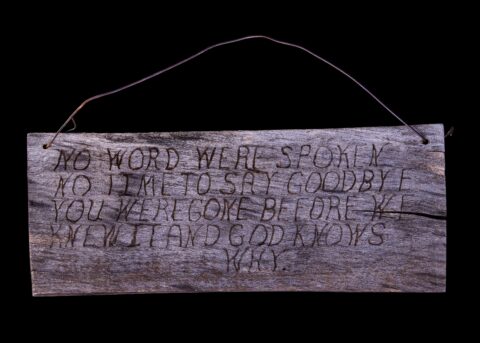 NO WORD WERE SPOKEN
NO TIME TO SAY GOODBYE
YOU WERE GONE BEFORE WE
KNEW IT AND GOD KNOWS
WHY.